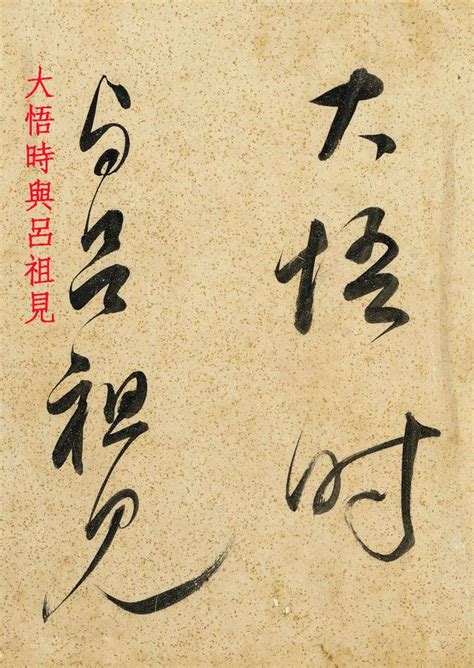 大悟时
与吕祖见
大悟時與呂祖見